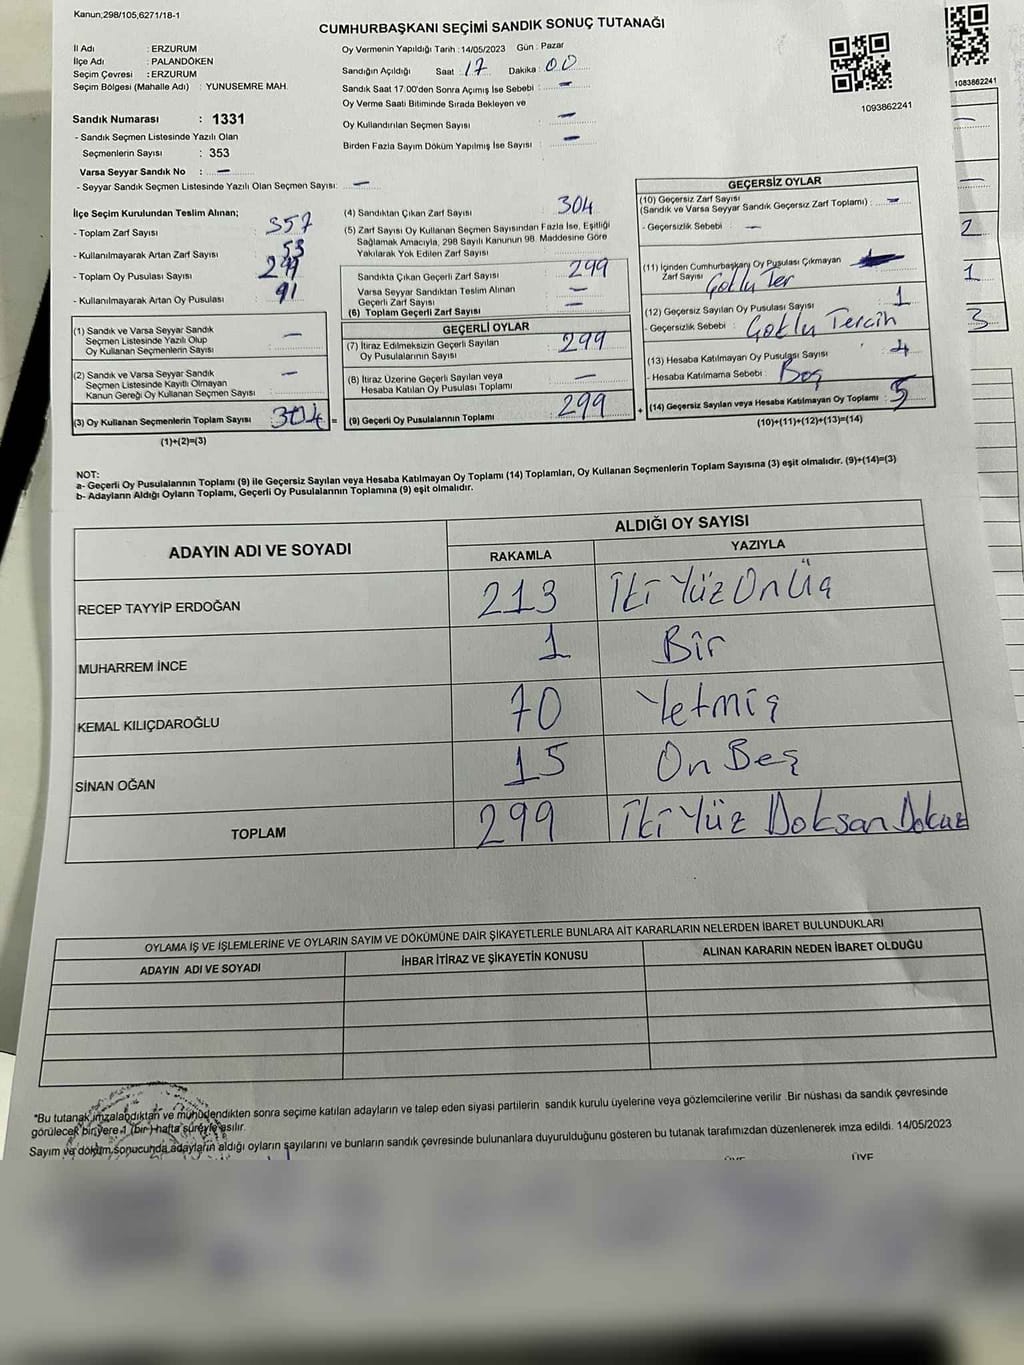 Kanun,298/105,6271/18-1
CUMHURBAŞKANI SEÇİMİ SANDIK SONUÇ TUTANAĞI
İl Adı : ERZURUM
İlçe Adı : PALANDÖKEN
Seçim Çevresi : ERZURUM
Seçim Bölgesi (Mahalle Adı) : YUNUSEMRE MAH.
Sandık Numarası : 1331
- Sandık Seçmen Listesinde Yazılı Olan
Seçmenlerin Sayısı : 353
Varsa Seyyar Sandık No : —
- Seyyar Sandık Seçmen Listesinde Yazılı Olan Seçmen Sayısı: —
Oy Vermenin Yapıldığı Tarih : 14/05/2023 Gün : Pazar
Sandığın Açıldığı Saat : 17 Dakika : 00
Sandık Saat 17:00'den Sonra Açımış İse Sebebi : —
Oy Verme Saati Bitiminde Sırada Bekleyen ve
Oy Kullandırılan Seçmen Sayısı : —
Birden Fazla Sayım Döküm Yapılmış İse Sayısı : —
1093862241
1083862241
İlçe Seçim Kurulundan Teslim Alınan;
- Toplam Zarf Sayısı : 357
- Kullanılmayarak Artan Zarf Sayısı : 53
- Toplam Oy Pusulası Sayısı :
- Kullanılmayarak Artan Oy Pusulası : 91
(1) Sandık ve Varsa Seyyar Sandık
Seçmen Listesinde Yazılı Olup
Oy Kullanan Seçmenlerin Sayısı : —
(2) Sandık ve Varsa Seyyar Sandık
Seçmen Listesinde Kayıtlı Olmayan
Kanun Gereği Oy Kullanan Seçmen Sayısı : —
(3) Oy Kullanan Seçmenlerin Toplam Sayısı : 304 =
(1)+(2)=(3)
(4) Sandıktan Çıkan Zarf Sayısı : 304
(5) Zarf Sayısı Oy Kullanan Seçmen Sayısından Fazla İse, Eşitliği
Sağlamak Amacıyla, 298 Sayılı Kanunun 98. Maddesine Göre
Yakılarak Yok Edilen Zarf Sayısı :
Sandıkta Çıkan Geçerli Zarf Sayısı : 299
Varsa Seyyar Sandıktan Teslim Alınan
Geçerli Zarf Sayısı : —
(6) Toplam Geçerli Zarf Sayısı : —
GEÇERLİ OYLAR
(7) İtiraz Edilmeksizin Geçerli Sayılan
Oy Pusulalarının Sayısı : 299
(8) İtiraz Üzerine Geçerli Sayılan veya
Hesaba Katılan Oy Pusulası Toplamı : —
(9) Geçerli Oy Pusulalarının Toplamı : 299 +
GEÇERSİZ OYLAR
(10) Geçersiz Zarf Sayısı
(Sandık ve Varsa Seyyar Sandık Geçersiz Zarf Toplamı) : —
- Geçersizlik Sebebi : —
(11) İçinden Cumhurbaşkanı Oy Pusulası Çıkmayan
Zarf Sayısı :
(12) Geçersiz Sayılan Oy Pusulası Sayısı : 1
- Geçersizlik Sebebi : Çoklu Tercih
(13) Hesaba Katılmayan Oy Pusulası Sayısı : 4
- Hesaba Katılmama Sebebi : Boş
(14) Geçersiz Sayılan veya Hesaba Katılmayan Oy Toplamı : 5
(10)+(11)+(12)+(13)=(14)
2
1
3
NOT:
a- Geçerli Oy Pusulalarının Toplamı (9) ile Geçersiz Sayılan veya Hesaba Katılmayan Oy Toplamı (14) Toplamları, Oy Kullanan Seçmenlerin Toplam Sayısına (3) eşit olmalıdır. (9)+(14)=(3)
b- Adayların Aldığı Oyların Toplamı, Geçerli Oy Pusulalarının Toplamına (9) eşit olmalıdır.
ADAYIN ADI VE SOYADI ALDIĞI OY SAYISI
RAKAMLA YAZIYLA
RECEP TAYYİP ERDOĞAN 213 İki Yüz On Üç
MUHARREM İNCE 1 Bir
KEMAL KILIÇDAROĞLU 70 Yetmiş
SİNAN OĞAN 15 On Beş
TOPLAM 299 İki Yüz Doksan Dokuz
OYLAMA İŞ VE İŞLEMLERİNE VE OYLARIN SAYIM VE DÖKÜMÜNE DAİR ŞİKAYETLERLE BUNLARA AİT KARARLARIN NELERDEN İBARET BULUNDUKLARI
ADAYIN ADI VE SOYADI İHBAR İTİRAZ VE ŞİKAYETİN KONUSU ALINAN KARARIN NEDEN İBARET OLDUĞU
*Bu tutanak imzalandıktan ve mühürlendikten sonra seçime katılan adayların ve talep eden siyasi partilerin sandık kurulu üyelerine veya gözlemcilerine verilir .Bir nüshası da sandık çevresinde
görülecek bir yere 1 (bir) hafta süreyle asılır.
Sayım ve döküm sonucunda adayların aldığı oyların sayılarını ve bunların sandık çevresinde bulunanlara duyurulduğunu gösteren bu tutanak tarafımızdan düzenlenerek imza edildi. 14/05/2023
ÜYE ÜYE